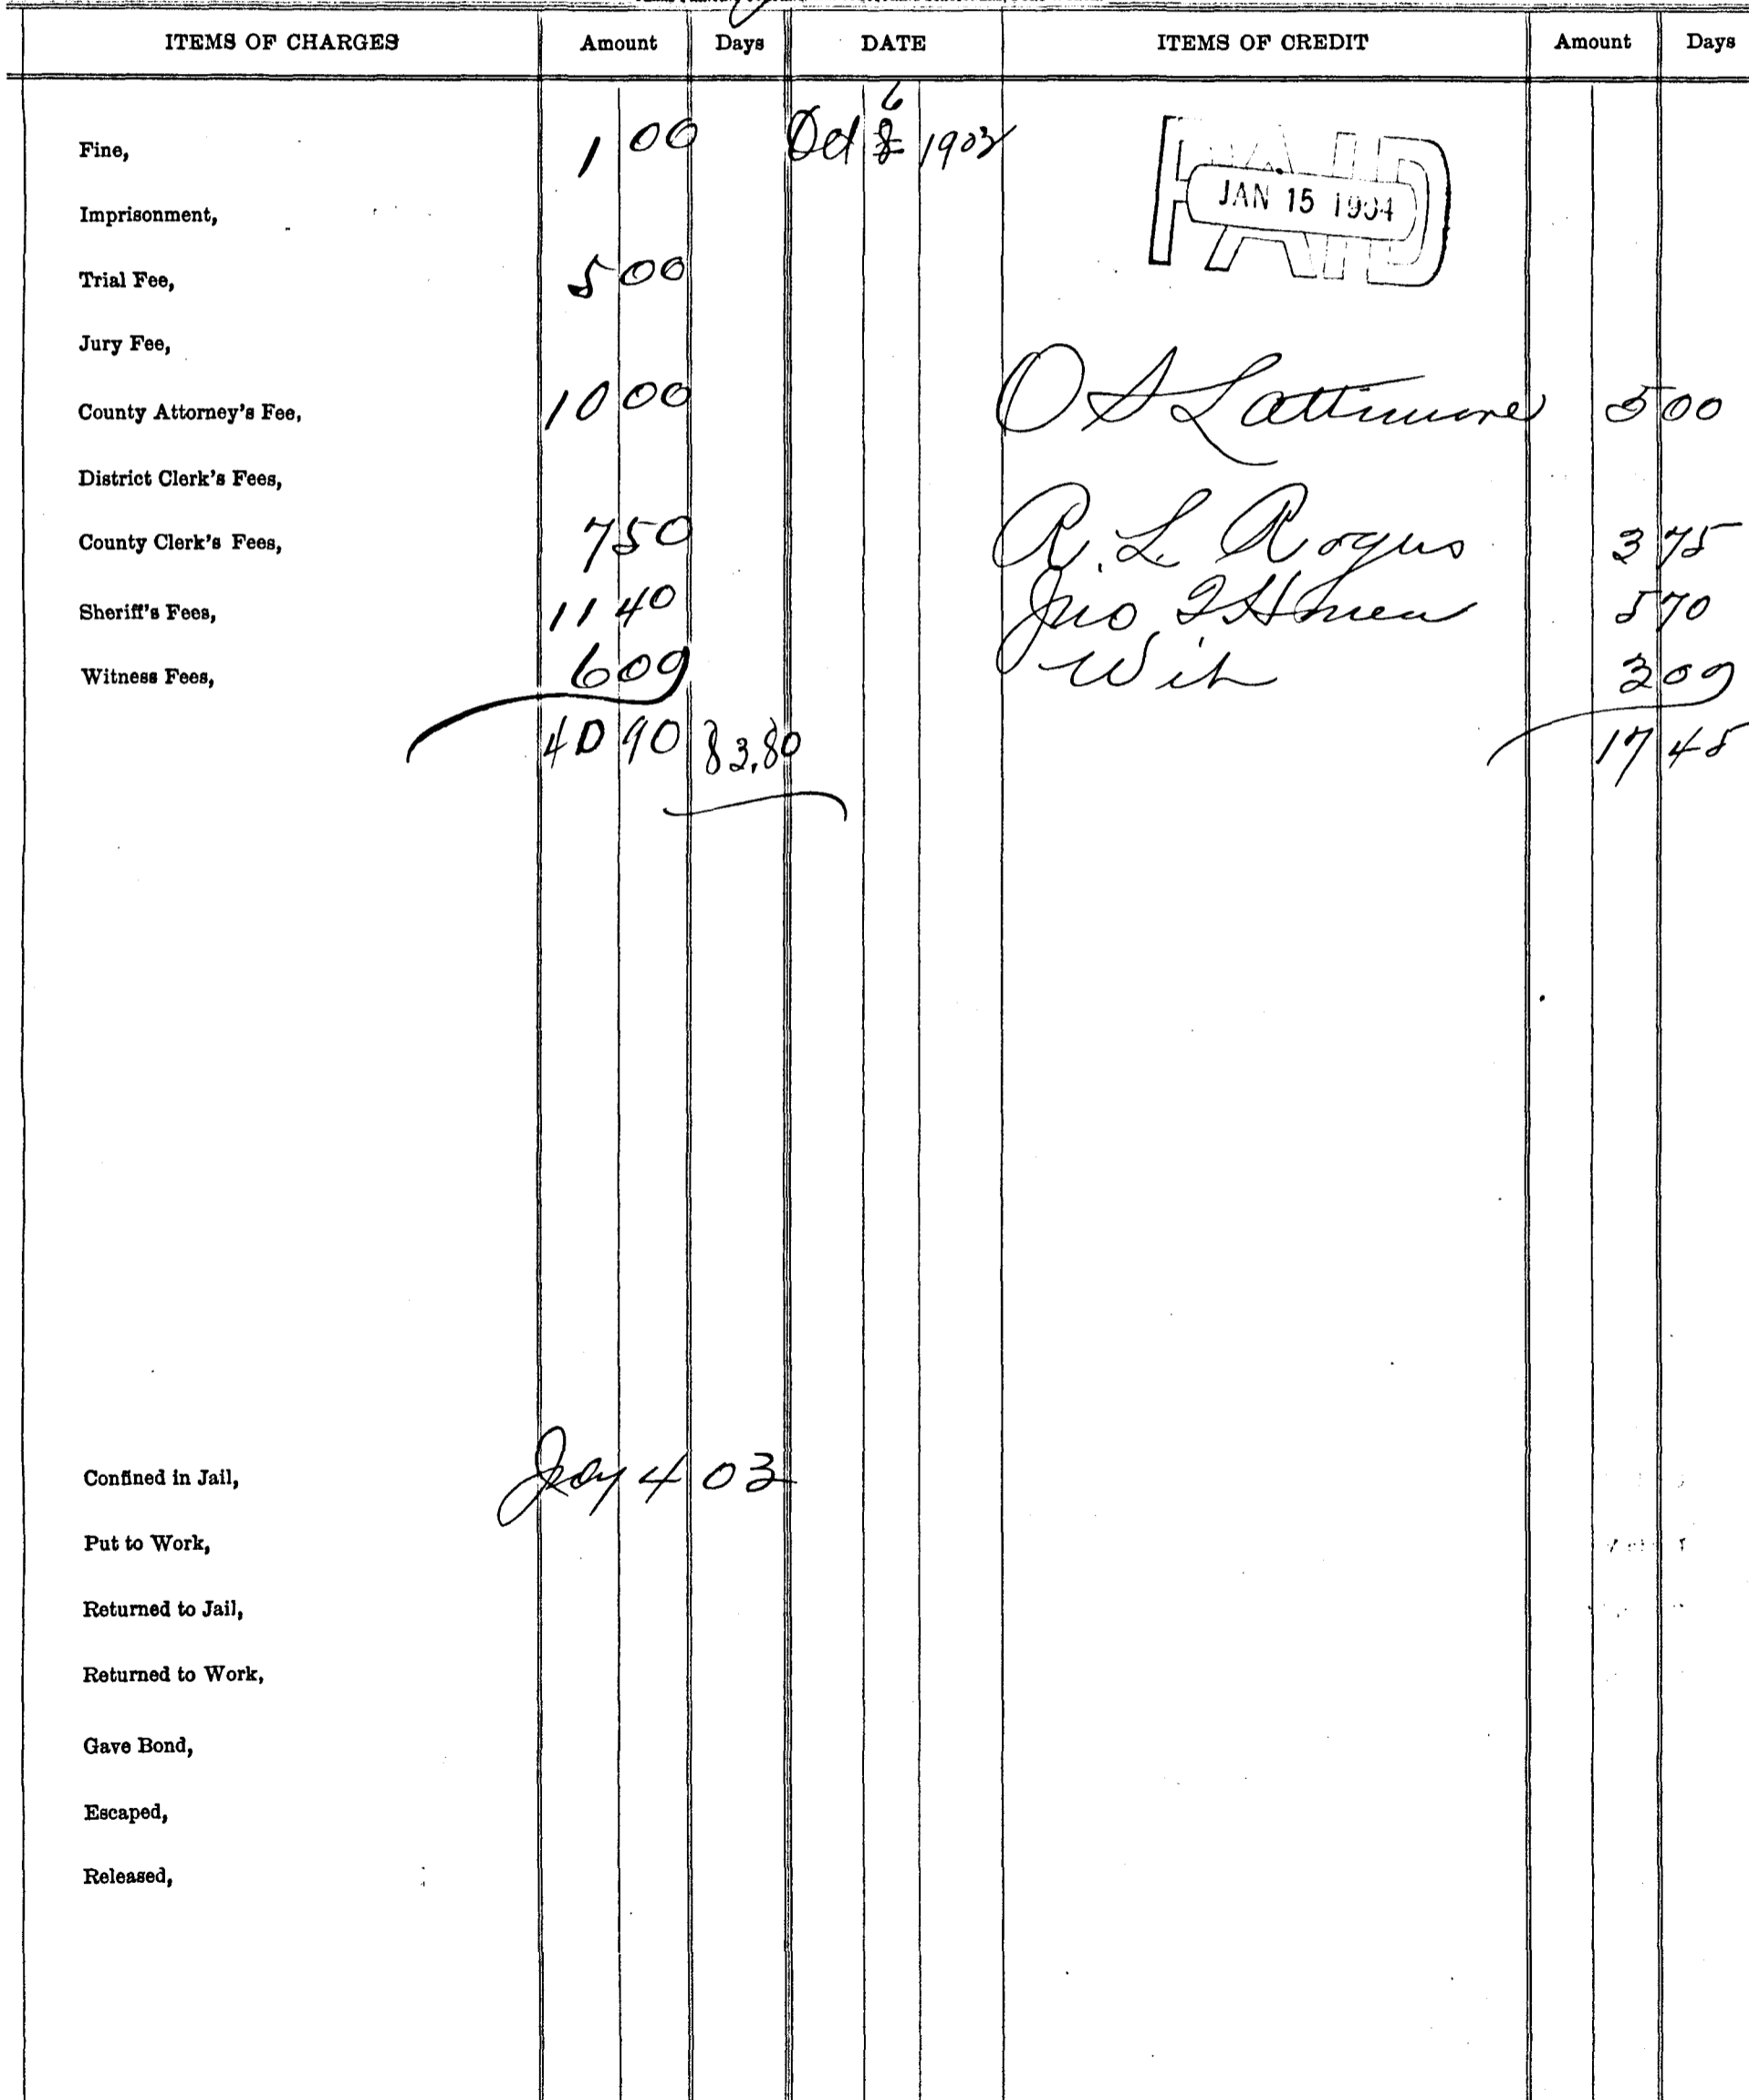 ITEMS OF CHARGES Amount Days DATE ITEMS OF CREDIT Amount Days
6
Fine, 1 00 Oct 8 1903
PAID
JAN 15 1904
Imprisonment,
Trial Fee, 5 00
Jury Fee,
County Attorney's Fee, 10 00 O S Lattimore 5 00
District Clerk's Fees,
County Clerk's Fees, 7 50 R. L. Rogers 3 75
Sheriff's Fees, 11 40 Jno T Honea 5 70
Witness Fees, 6 00 Wit 3 00
40 90 83.80 17 45
Confined in Jail, 4 03
Put to Work,
Returned to Jail,
Returned to Work,
Gave Bond,
Escaped,
Released,